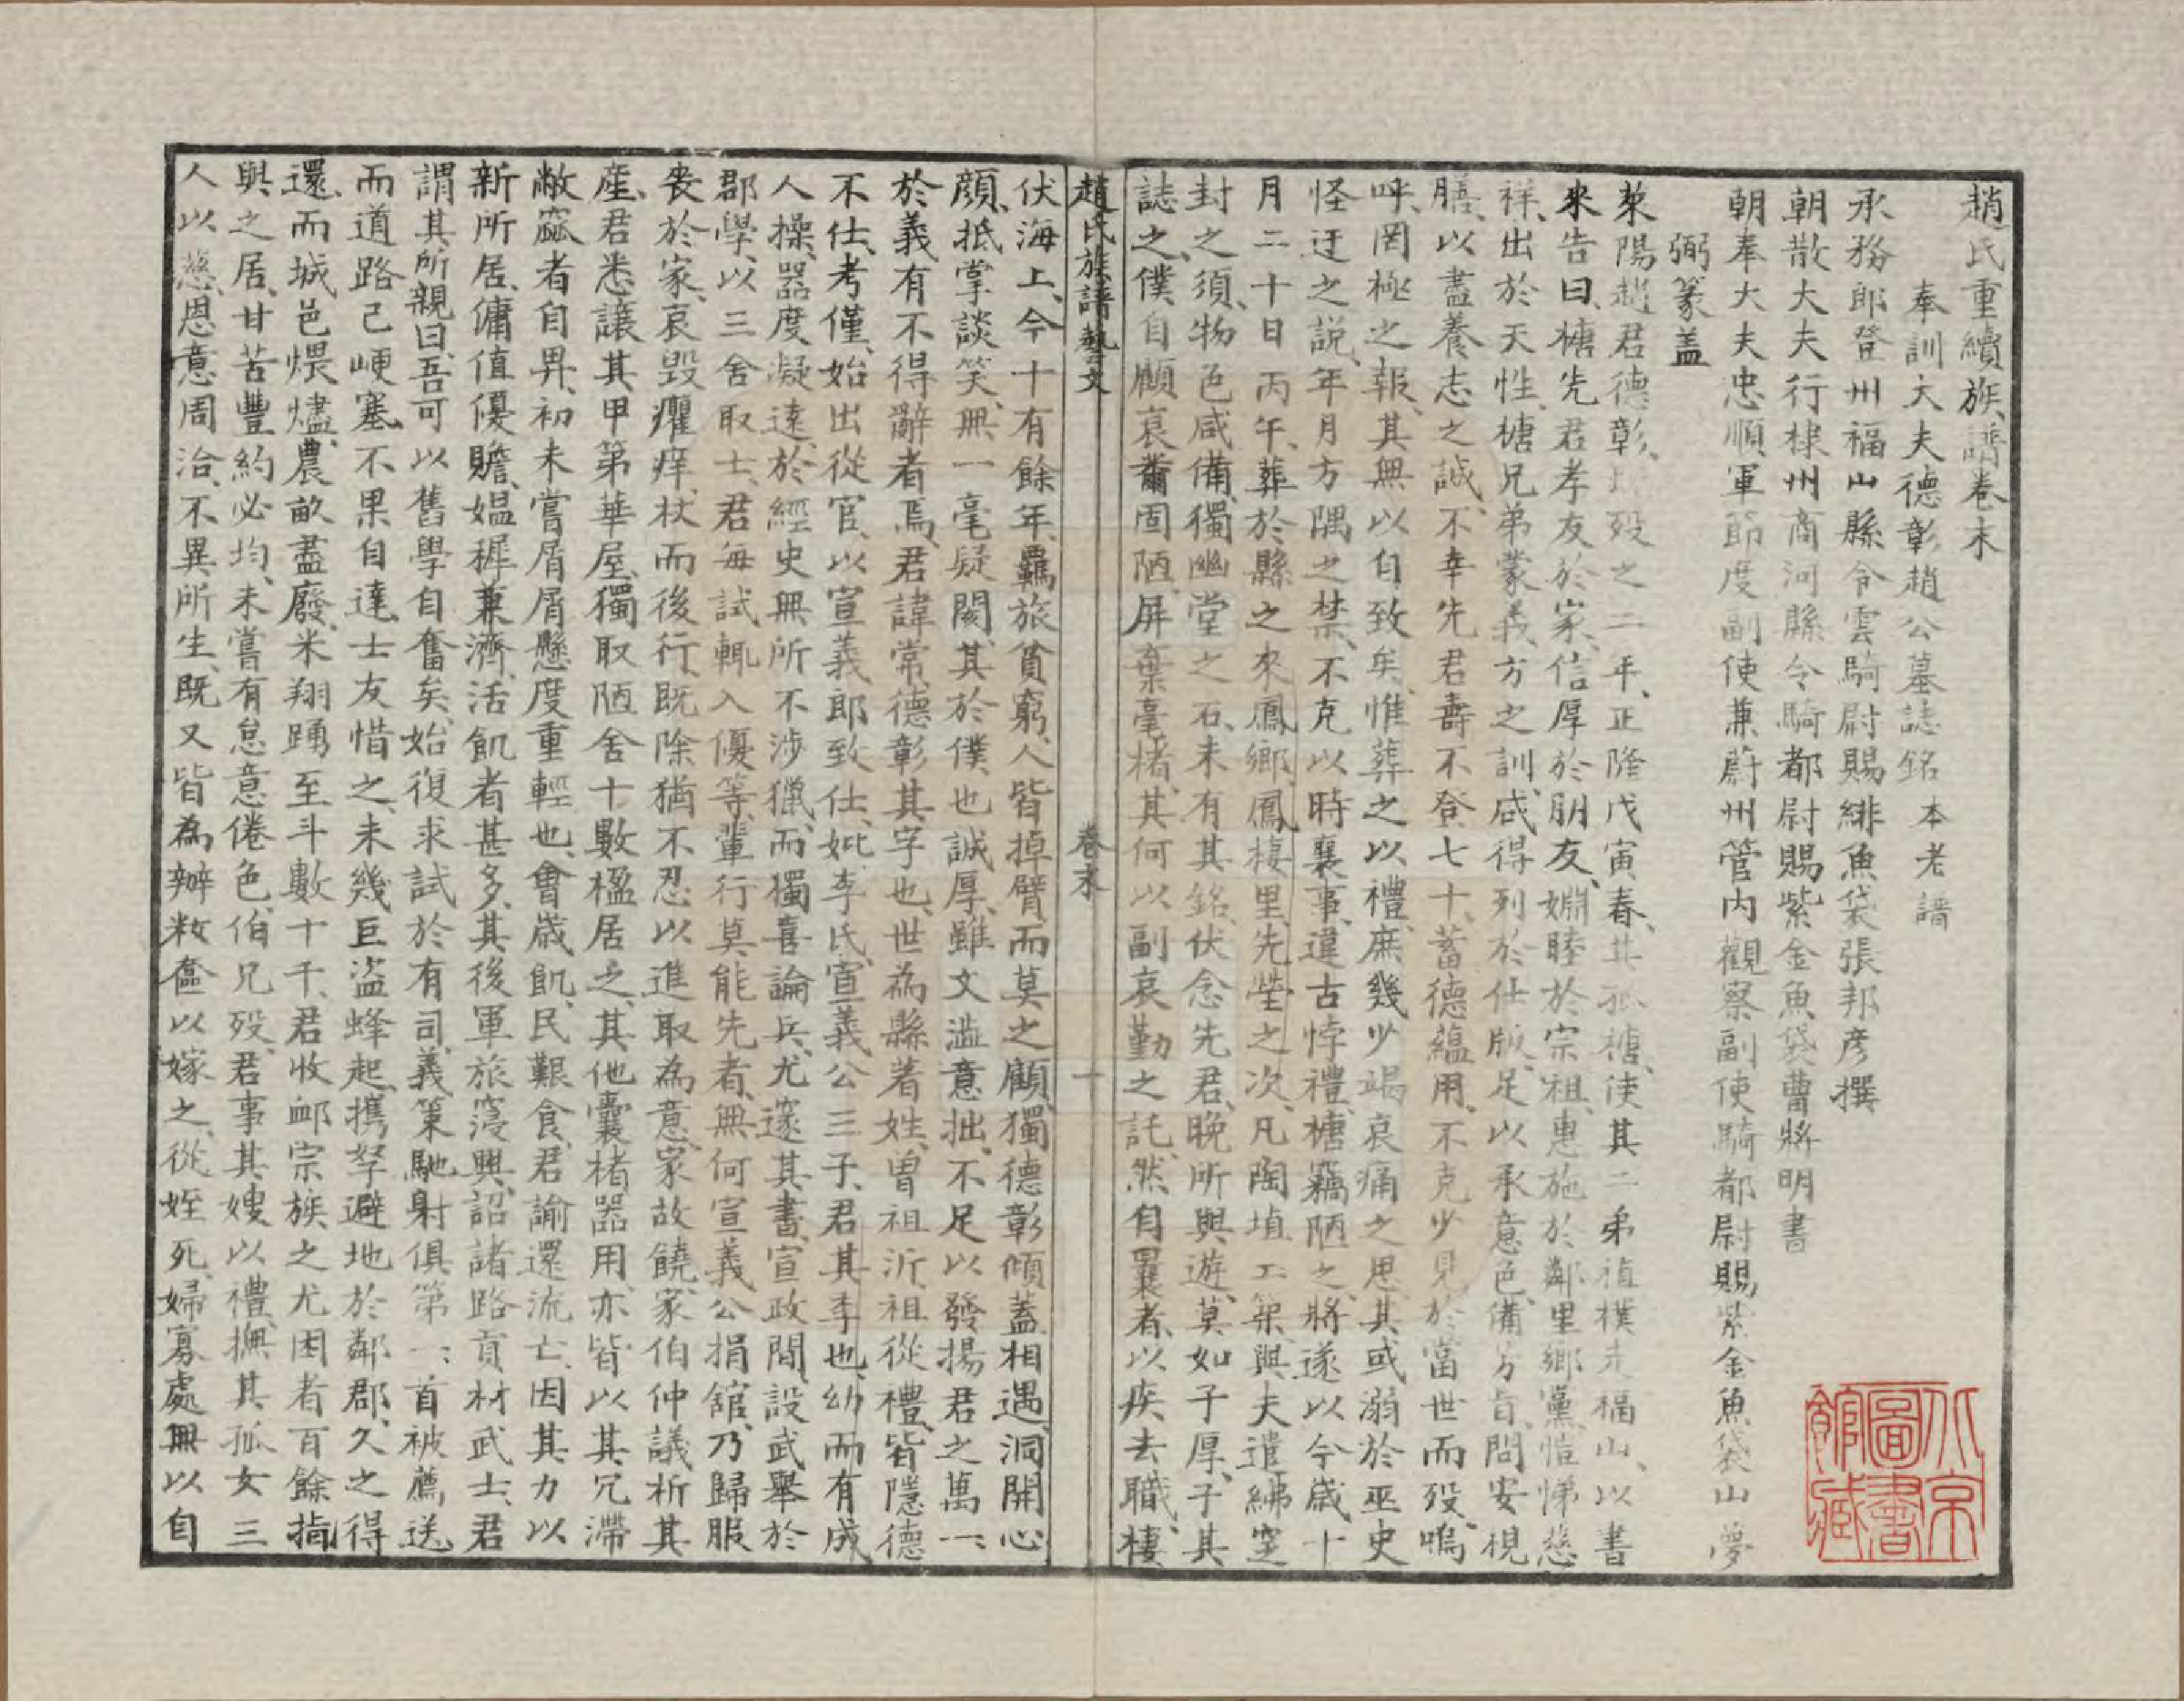 趙氏重續族譜卷末
奉訓大夫德彰趙公墓誌銘 本老譜
承務郎登州福山縣令雲騎尉賜緋魚袋張邦彥撰
朝散大夫行棣州商河縣令騎都尉賜紫金魚袋曹將明書
朝奉大夫忠順軍節度副使兼蔚州管内觀察副使騎都尉賜紫金魚袋山夢
弼篆盖
萊陽趙君德彰、殁之二年、正隆戊寅春、其孤榶、使其二弟禎樸走福山、以書
來告曰、榶先君孝友於家、信厚於朋友、婣睦於宗祖、惠施於鄰里鄉黨、愷悌慈
祥、出於天性、榶兄弟蒙義、方之訓、咸得列於仕版、足以承意色、備芳旨、問安視
膳、以盡養志之誠、不幸先君壽不登七十、蓄德蘊用、不克少見於當世而殁、嗚
呼、罔極之報、其無以自致矣、惟葬之以禮、庶幾少竭哀痛之思、其或溺於巫史
怪迂之説、年月方隅之禁、不克以時襄事、違古悖禮、榶竊陋之、將遂以今歲十
月二十日丙午、葬於縣之來鳳鄉、鳳棲里、先塋之次、凡陶埴工築、與夫遣紼窆
封之須、物色咸備、獨幽堂之石、未有其銘、伏念先君、晚所與遊、莫如子厚、子其
誌之、僕自顧衰薾固陋、屏棄毫楮、其何以副哀勤之託、然自曩者、以疾去職、棲
趙氏族譜藝文 卷末 十
伏海上、今十有餘年、羈旅貧窮、人皆掉臂而莫之顧、獨德彰傾蓋相遇、洞開心
顔、抵掌談笑、無一毫疑閡、其於僕也誠厚、雖文澁意拙、不足以發揚君之萬一、
於義有不得辭者焉、君諱常、德彰其字也、世為縣著姓、曾祖沂、祖從禮、皆隱德
不仕、考僅、始出從官、以宣義郎致仕、妣李氏、宣義公三子、君其季也、幼而有成
人操、器度凝遠、於經史無所不涉獵、而獨喜論兵、尤邃其書、宣政間、設武舉於
郡學、以三舍取士、君每試輒入優等、輩行莫能先者、無何宣義公捐舘、乃歸服
丧於家、哀毁癯瘁、杖而後行、既除猶不忍以進取為意、家故饒、家伯仲議析其
産、君悉讓其甲第華屋、獨取陋舍十數楹居之、其他囊楮器用、亦皆以其冗滯
敝窳者自畀、初未嘗屑屑懸度重輕也、會歲飢、民艱食、君諭還流亡、因其力以
新所居、傭值優贍、媪穉兼濟、活飢者甚多、其後軍旅寖興、詔諸路貢材武士、君
謂其所親曰、吾可以舊學自奮矣、始復求試於有司、義策馳射俱第一、首被薦送
而道路己峺塞、不果自達、士友惜之、未幾巨盗蜂起、携孥避地於鄰郡、久之得
還、而城邑煨燼、農畝盡廢、米翔踴至斗數十千、君收衈宗族之尤困者百餘指
與之居、甘苦豐約必均、未嘗有怠意倦色、伯兄殁、君事其嫂以禮、撫其孤女三
人以慈、恩意周洽、不異所生、既又皆為辦粧奩以嫁之、從姪死、婦寡處無以自
北京圖書館藏